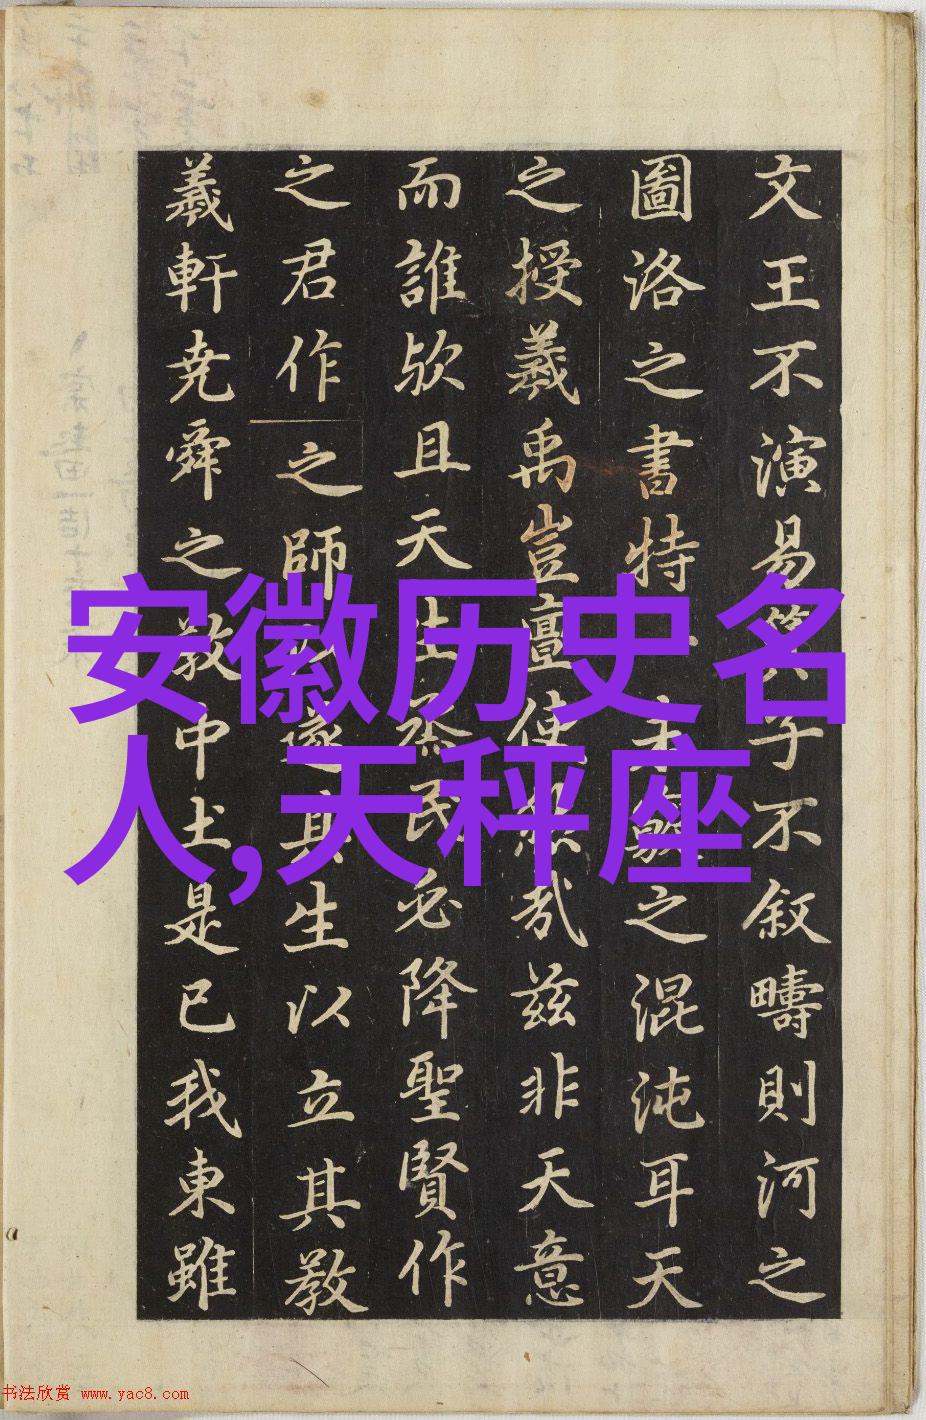 文王不演易箕子不叙疇則河之
圖洛之書特一未觧之混沌耳天
之授羲禹豈亶使然哉兹非天意
而誰欤且天生烝民必降聖賢作
之君作之師以遂其生以立其教
羲軒尭舜之教中土是已我東雖
安徽历史名
人,天秤座
书法欣赏 www.yac8.com